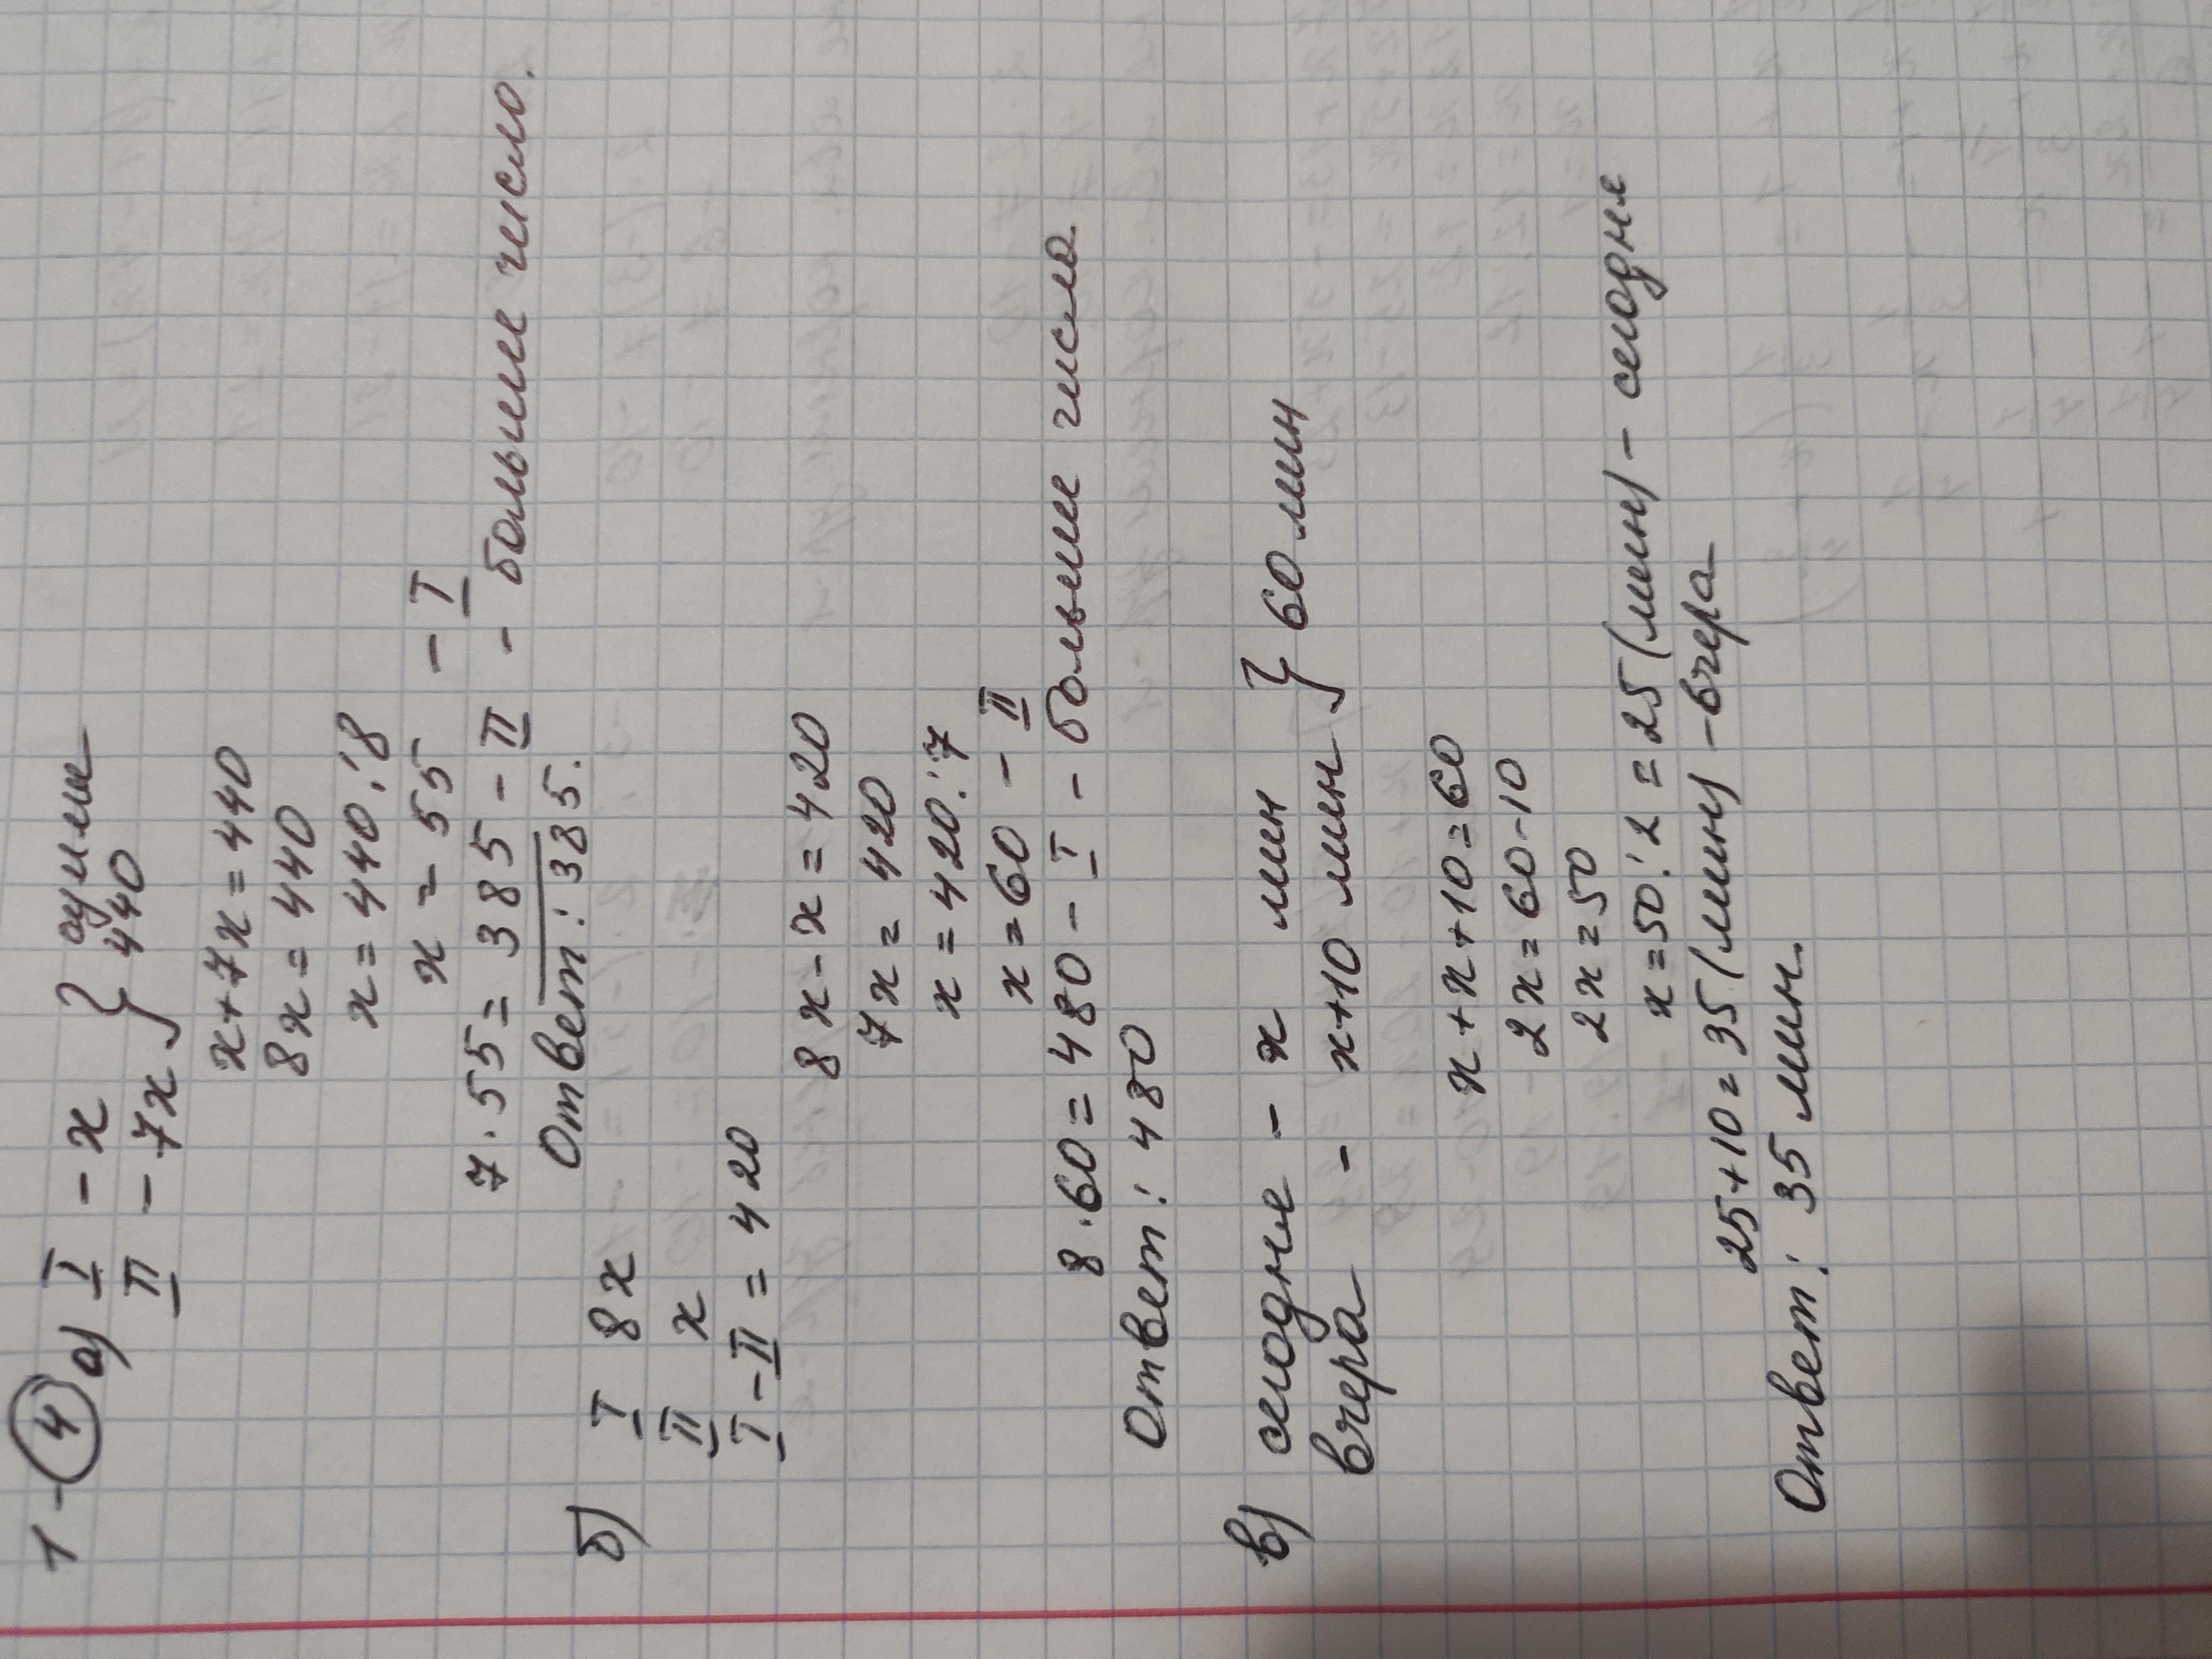 1 - 4 а) I - x } сумме
II - 7x } 440
x+7x=440
8x=440
x=440:8
x=55 - I
7·55=385 - II - большее число.
Ответ: 385.
б) I 8x
II x
I-II=420
8x-x=420
7x=420
x=420:7
x=60 - II
8·60=480 - I - большее число
Ответ: 480
в) сегодня - x мин } 60 мин
вчера - x+10 мин }
x+x+10=60
2x=60-10
2x=50
x=50:2=25(мин) - сегодня
25+10=35(мин) - вчера
Ответ: 35 мин.